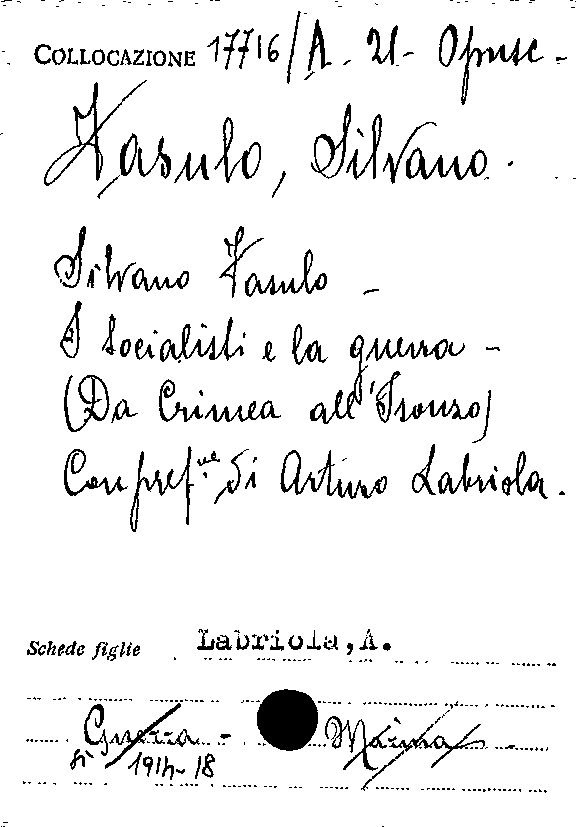 COLLOCAZIONE 17716/A. 21- Opusc-
Fasulo, Silvano.
Silvano Fasulo -
I socialisti e la guerra -
(Da Crimea all'Isonzo)
Con pref.ne di Arturo Labriola.
Schede figlie Labriola,A.
Guerra - Marina -
sì 1914-18